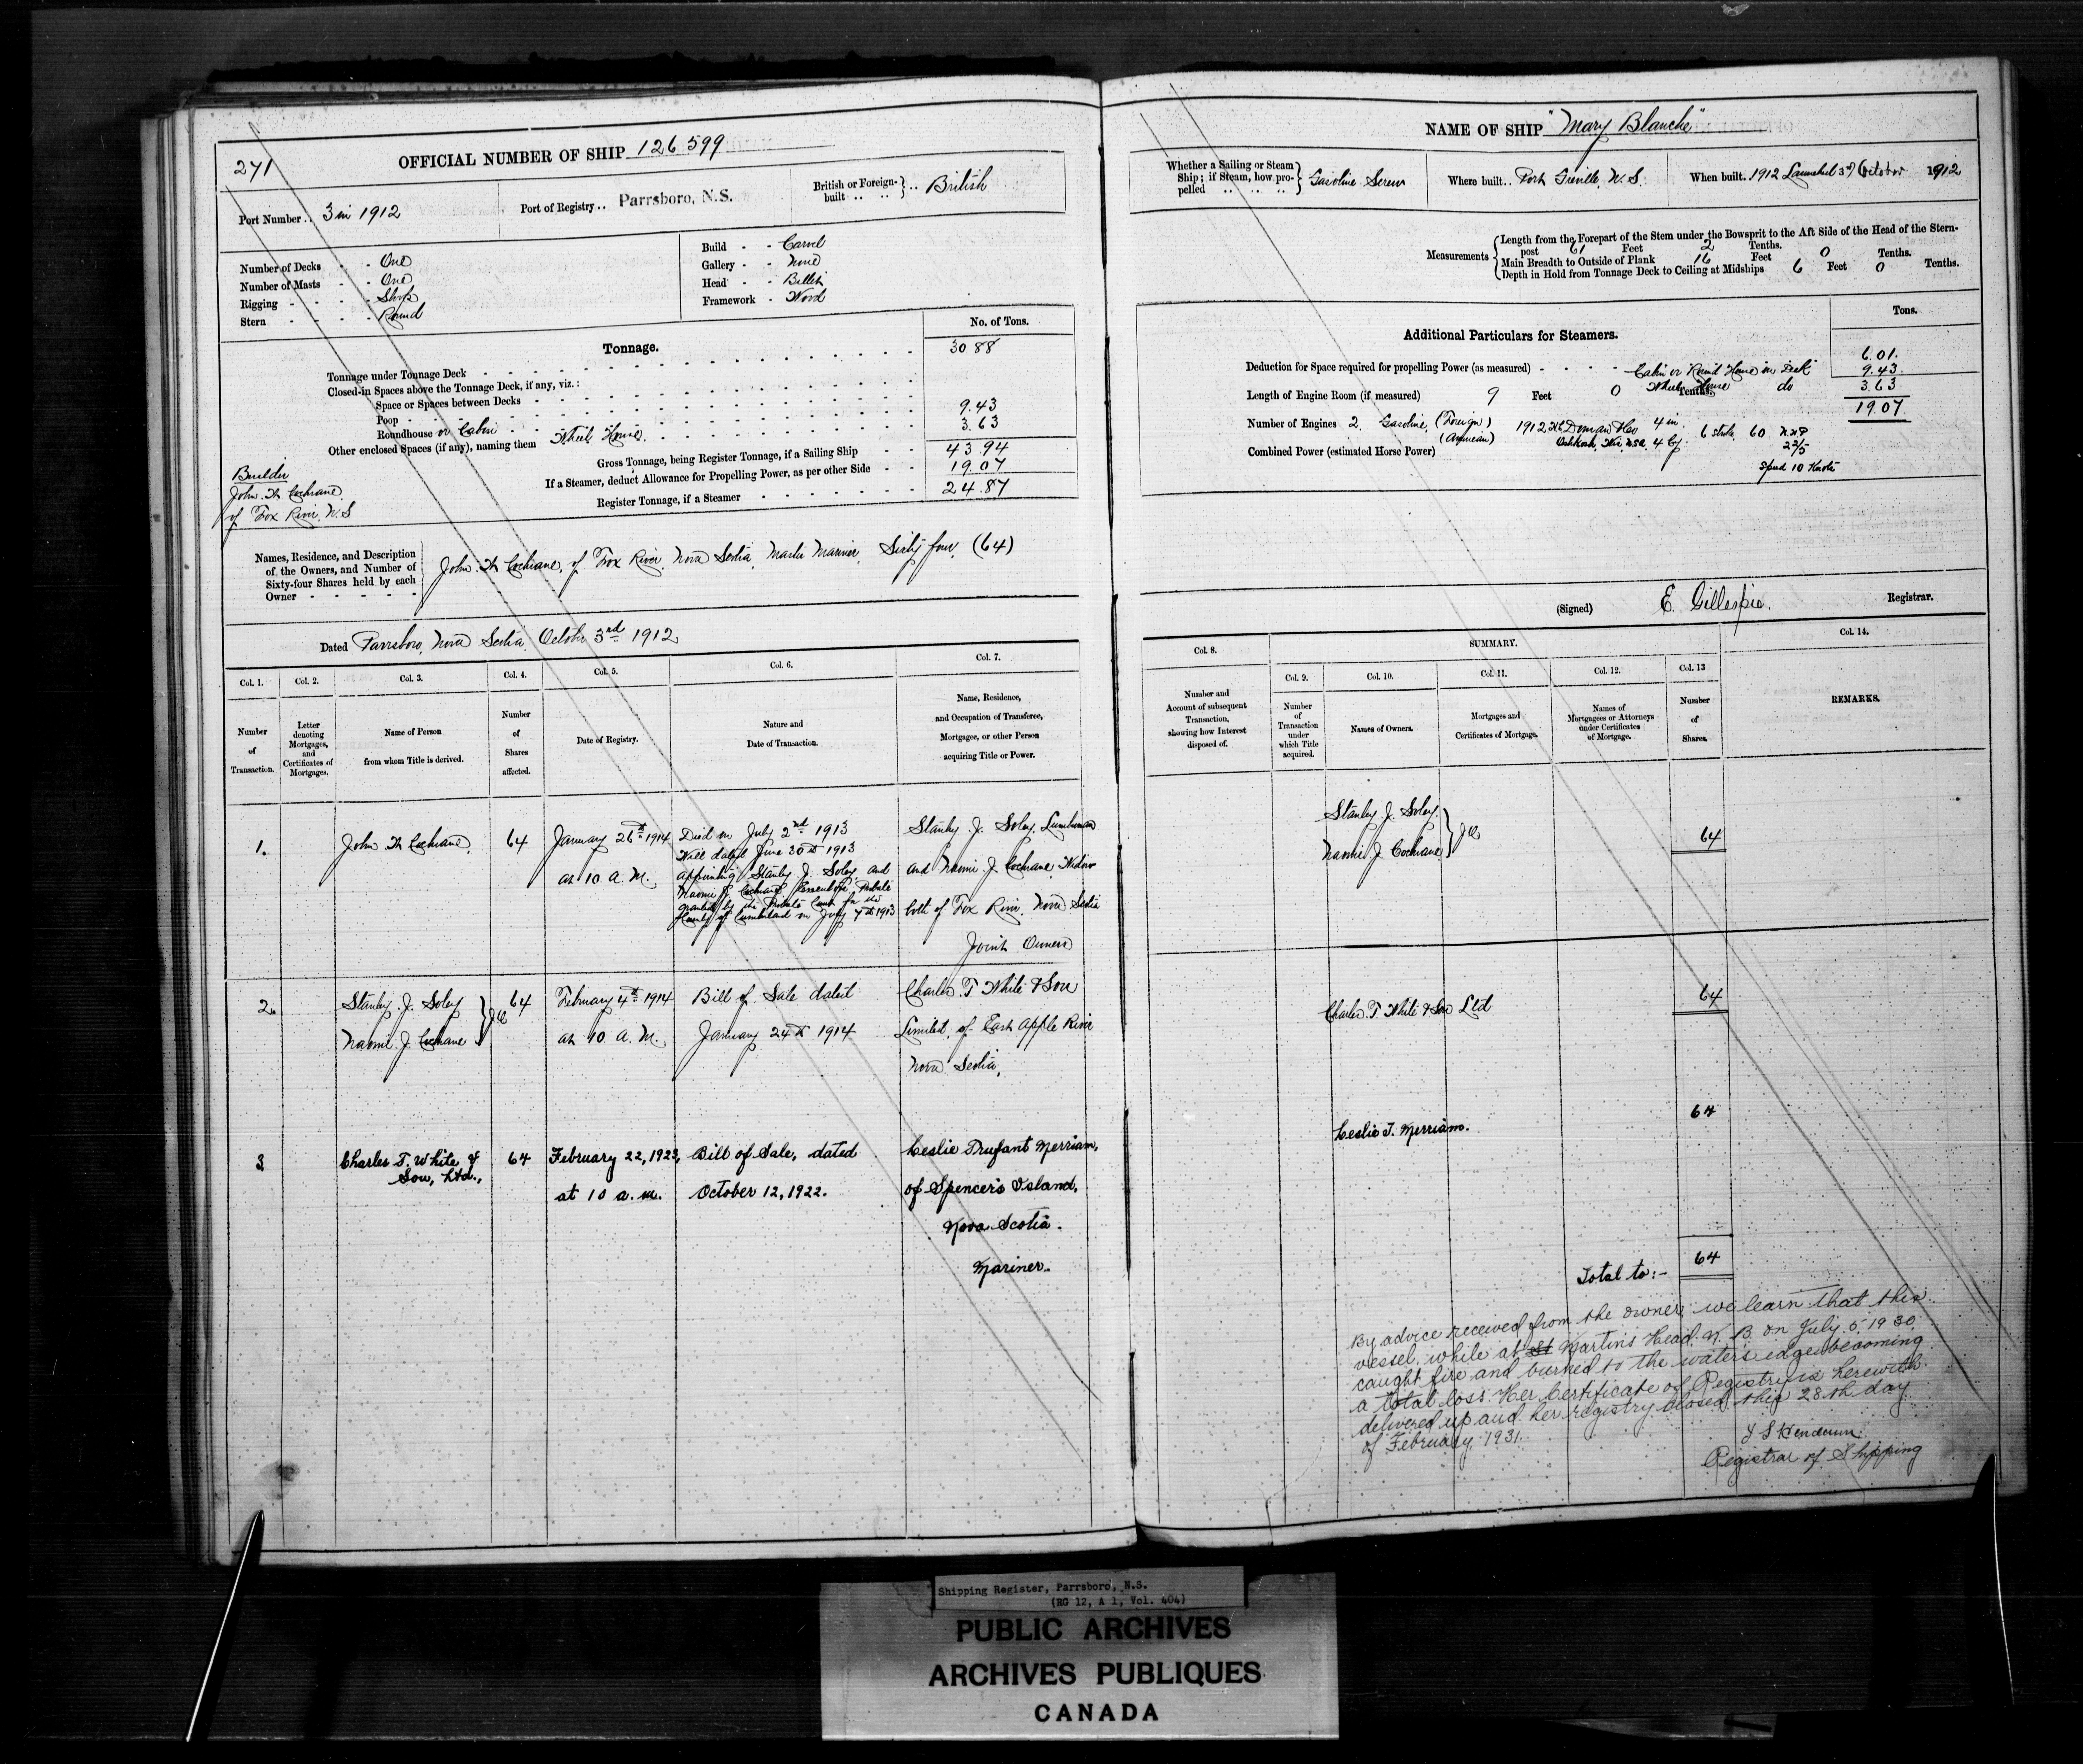 271
OFFICIAL NUMBER OF SHIP 126 599
Port Number .. 3 in 1912
Port of Registry .. Parrsboro, N.S.
British or Foreign-built .. .. } .. British
Number of Decks - - One
Number of Masts - - One
Rigging - - - - Sloop
Stern - - - - Round
Build - - Carvel
Gallery - - None
Head - - Billet
Framework - Wood
Tonnage.
No. of Tons.
Tonnage under Tonnage Deck 30 88
Closed-in Spaces above the Tonnage Deck, if any, viz.:
Space or Spaces between Decks
Poop
Roundhouse or Cabin 9.43
Other enclosed Spaces (if any), naming them Wheel House. 3.63
Gross Tonnage, being Register Tonnage, if a Sailing Ship 43.94
If a Steamer, deduct Allowance for Propelling Power, as per other Side 19.07
Register Tonnage, if a Steamer 24.87
Builder
John W Cochrane
of Fox River, N.S
Names, Residence, and Description
of the Owners, and Number of
Sixty-four Shares held by each
Owner - - - - -
John W Cochrane, of Fox River, Nova Scotia, Master Mariner, Sixty four, (64)
Dated Parrsboro, Nova Scotia, October 3rd 1912
Col. 1. Col. 2. Col. 3. Col. 4. Col. 5. Col. 6. Col. 7.
Number of Transaction.
Letter denoting Mortgages, and Certificates of Mortgages.
Name of Person from whom Title is derived.
Number of Shares affected.
Date of Registry.
Nature and Date of Transaction.
Name, Residence, and Occupation of Transferee, Mortgagee, or other Person acquiring Title or Power.
1.
John W Cochrane
64
January 26th 1914
at 10 A. M.
Died on July 2nd 1913
Will dated June 30th 1913
appointing Stanley J. Soley and
Naomi J Cochrane Executors, Probate
granted by the Probate Court for the
County of Cumberland on July 7th 1913
Stanley J. Soley, Lumberman
and Naomi J Cochrane, Widow
both of Fox River, Nova Scotia
Joint Owners
2.
Stanley J. Soley
Naomi J. Cochrane } JO
64
February 4th 1914
at 10 A. M.
Bill of Sale dated
January 24th 1914
Charles T White & Son
Limited, of East Apple River
Nova Scotia,
3
Charles T. White &
Son, Ltd.,
64
February 22, 1923,
at 10 a.m.
Bill of Sale, dated
October 12, 1922.
Leslie Trufant Merriam,
of Spencer's Island,
Nova Scotia.
Mariner.
NAME OF SHIP "Mary Blanche"
Whether a Sailing or Steam
Ship; if Steam, how pro-
pelled .. .. .. } Gasoline Screw
Where built .. Port Greville, N.S.
When built .. 1912 Launched 3rd October 1912
Measurements
Length from the Forepart of the Stem under the Bowsprit to the Aft Side of the Head of the Stern-
post 61 Feet 2 Tenths.
Main Breadth to Outside of Plank 16 Feet 0 Tenths.
Depth in Hold from Tonnage Deck to Ceiling at Midships 6 Feet 0 Tenths.
Additional Particulars for Steamers.
Tons.
Deduction for Space required for propelling Power (as measured) 6.01.
Cabin or Round House on Deck 9.43.
Wheel House do 3.63
19.07
Length of Engine Room (if measured) 9 Feet 0 Tenths
Number of Engines 2. Gasoline, (Foreign) (American) 1912 4 in. 6 stroke 60
Oshkosh, Wis, USA. 4 Cy.
Combined Power (estimated Horse Power)
Speed 10 Knots
(Signed) E. Gillespie. Registrar.
Col. 8.
SUMMARY.
Col. 9. Col. 10. Col. 11. Col. 12. Col. 13
Col. 14.
Number and Account of subsequent Transaction, showing how Interest disposed of.
Number of Transaction under which Title acquired.
Names of Owners.
Mortgages and Certificates of Mortgage.
Names of Mortgagees or Attorneys under Certificates of Mortgage.
Number of Shares.
REMARKS.
Stanley J. Soley.
Naomi J. Cochrane } JO
64
Charles T. White & Son Ltd
64
Leslie T. Merriam.
64
Total to:- 64
By advice received from the owner we learn that this
vessel, while at St Martins Head. N. B. on July 5, 1930,
caught fire and burned to the waters edge becoming
a total loss. Her Certificate of Registry is herewith
delivered up and her registry closed this 28th day
of February 1931.
Registrar of Shipping
Shipping Register, Parrsboro, N.S.
(RG 12, A 1, Vol. 404)
PUBLIC ARCHIVES
ARCHIVES PUBLIQUES
CANADA